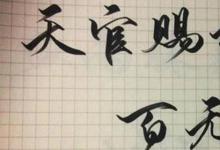 天官赐
百无